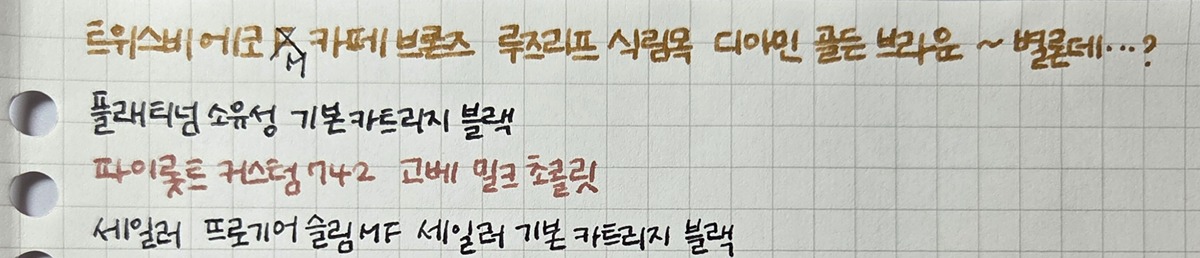 트위스비 에코 M 카페 브론즈 루즈리프 식림목 디아민 골든 브라운 ~ 별론데...?
플래티넘 소유성 기본 카트리지 블랙
파이롯트 커스텀 742 고베 밀크 초콜릿
세일러 프로기어 슬림 MF 세일러 기본 카트리지 블랙